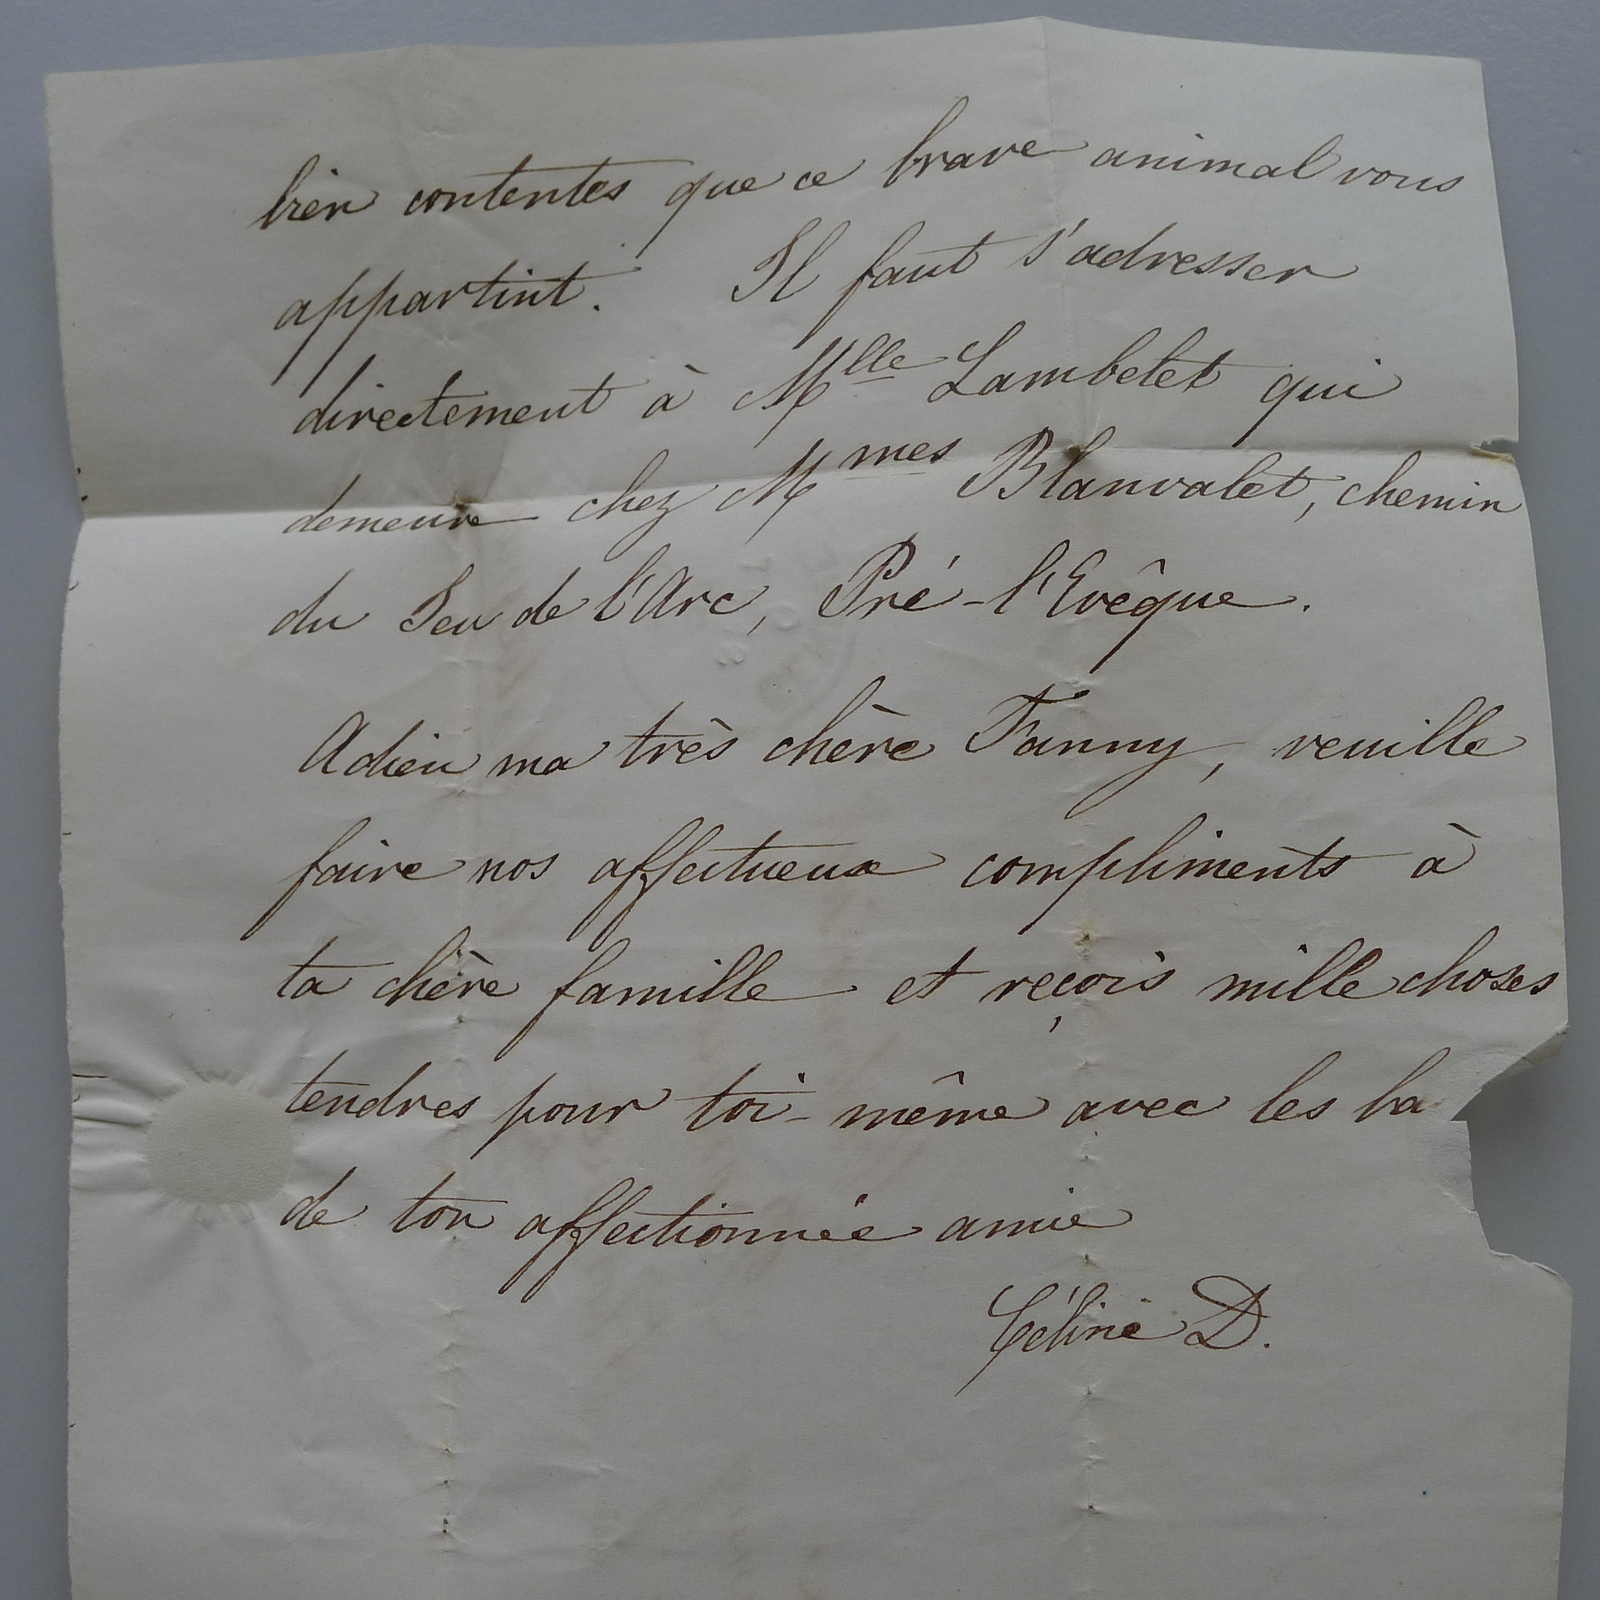 bien contentes que ce brave animal vous
appartint. Il faut s'adresser
directement à Mlle Lambelet qui
demeure chez Mmes Blanvalet, chemin
du Jeu de l'Arc, Pré-l'Evêque.
Adieu ma très chère Fanny, veuille
faire nos affectueux compliments à
ta chère famille et reçois mille choses
tendres pour toi-même avec les ba
de ton affectionnée amie
Céline D.